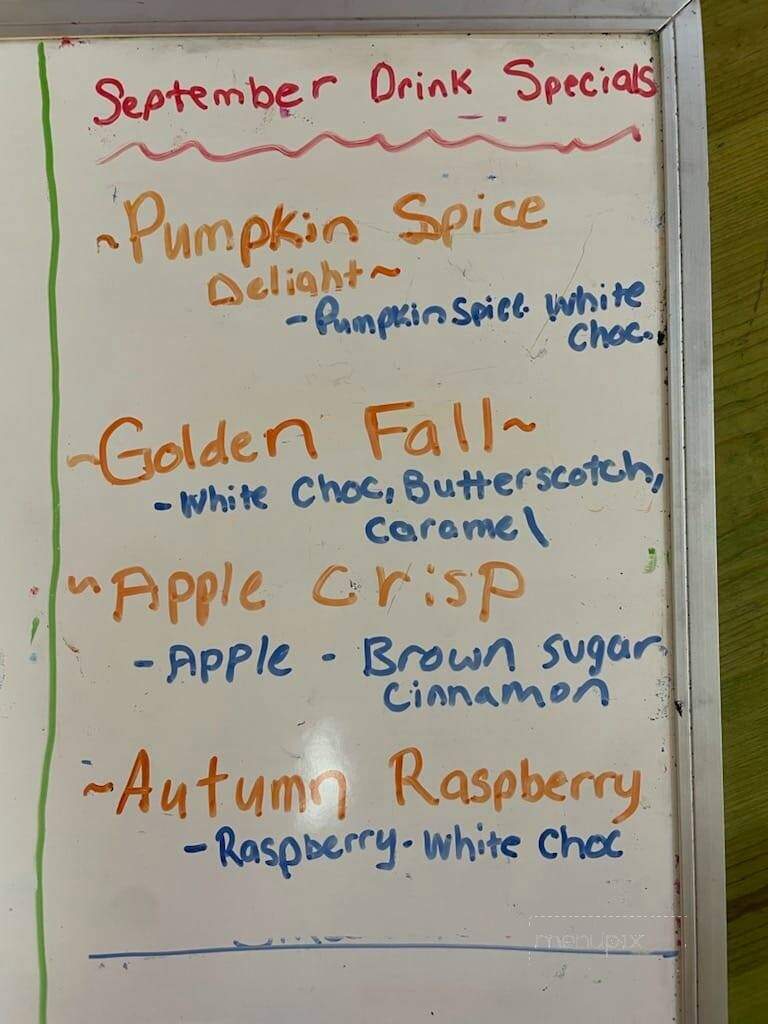 September Drink Specials
~Pumpkin Spice
Delight~
-Pumpkin Spice White
Choc.
~Golden Fall~
-White Choc, Butterscotch,
Caramel
~Apple Crisp
-Apple - Brown Sugar
Cinnamon
~Autumn Raspberry
-Raspberry-White Choc
menupix